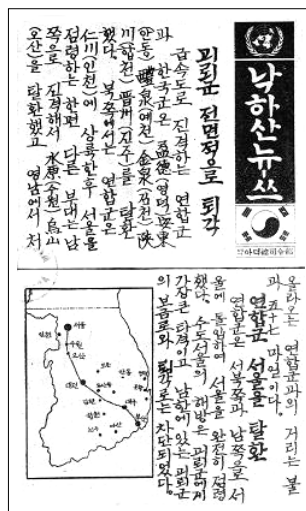 낙하산뉴쓰
괴뢰군 전면적으로 퇴각
급속도로 진격하는 연합군
과 한국군은 盈德(영덕) 安東
(안동) 醴泉(예천) 金泉(김천) 陜
川(합천) 晋州(진주)를 탈환
했다. 북쪽에서는 연합군은
仁川(인천)에 상륙한후 서울을
점령하는 한편 다른 부대는 남
쪽으로 진격해서 水原(수원) 烏山
(오산)을 탈환했고 영남에서 처
올라오는 연합군과의 거리는 불
과 五十七 마일이다.
연합군 서울을 탈환
연합군은 서북쪽과 남쪽으로 서
울에 돌입하여 서울을 완전히 점령
했다. 수도서울의 해방은 괴뢰군에게
가장큰 타격이고 남한에 있는 괴뢰군
의 보급로와 퇴각로는 차단되었다.
서울
인천
수원
오산
안동
대전
김천
대구
합천
진주
마산
부산